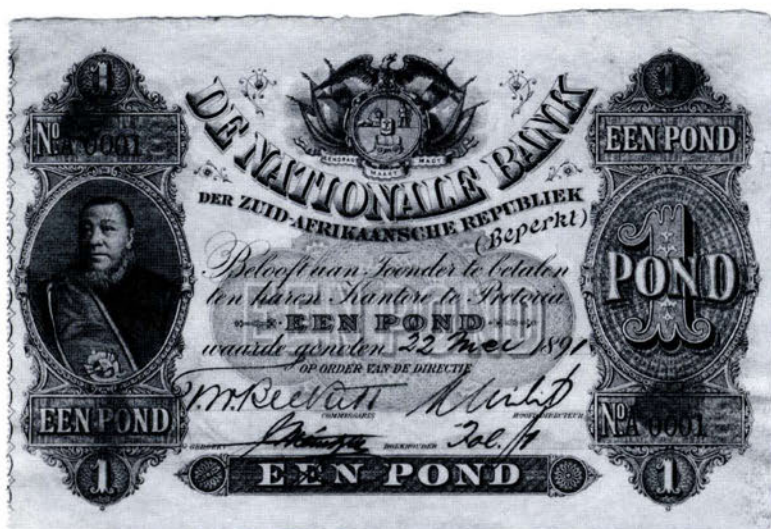 1
1
No. A 0001
EEN POND
EENDRAGT MAAKT MAGT
DE NATIONALE BANK
DER ZUID-AFRIKAANSCHE REPUBLIEK
(Beperkt)
Belooft aan Toonder te betalen
ten haren Kantore te Pretoria
EEN POND
waarde genoten 22 Mei 1891
OP ORDER VAN DE DIRECTIE
1 POND
COMMISSARIS
HOOFD DIRECTEUR
EEN POND
No. A 0001
BOEKHOUDER
1
EEN POND
1